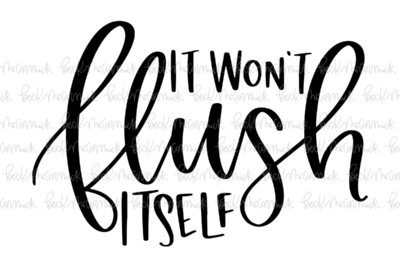 IT WON'T
flush
ITSELF